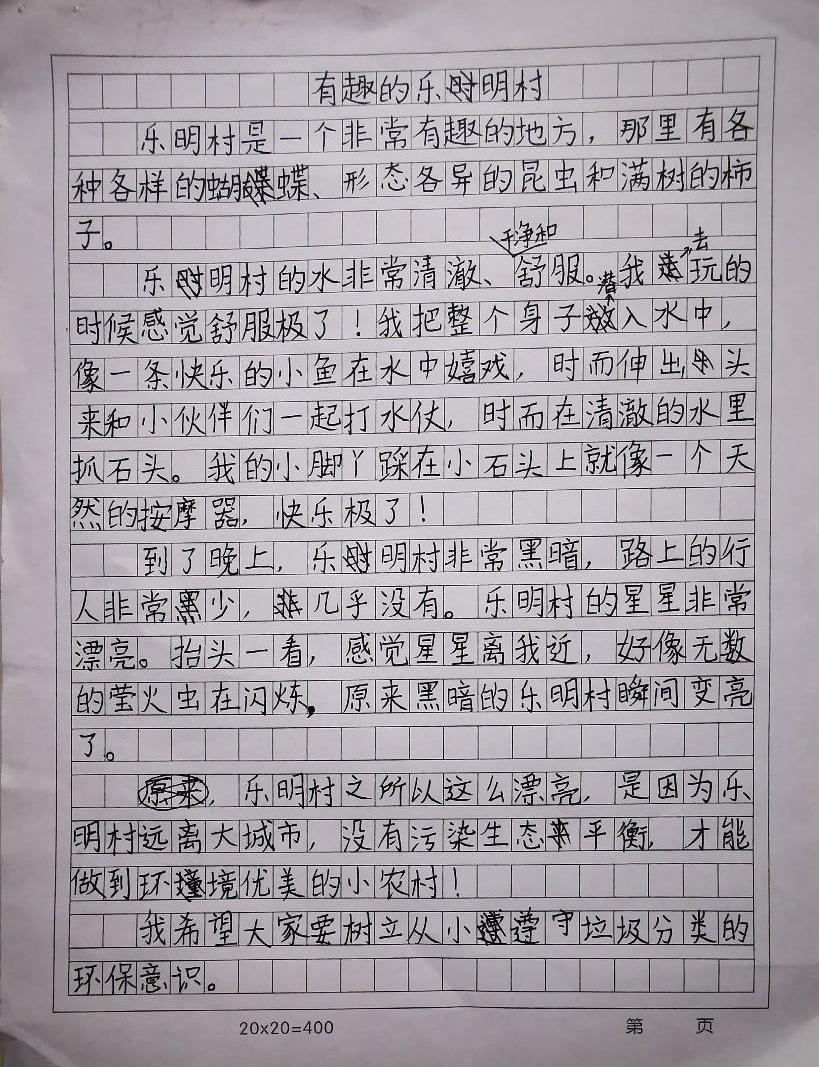 有趣的乐明村
乐明村是一个非常有趣的地方，那里有各
种各样的蝴蝶、形态各异的昆虫和满树的柿
子。
乐明村的水非常清澈、干净和舒服。我去玩的
时候感觉舒服极了！我把整个身子潜入水中，
像一条快乐的小鱼在水中嬉戏，时而伸出头
来和小伙伴们一起打水仗，时而在清澈的水里
抓石头。我的小脚丫踩在小石头上就像一个天
然的按摩器，快乐极了！
到了晚上，乐明村非常黑暗，路上的行
人非常少，几乎没有。乐明村的星星非常
漂亮。抬头一看，感觉星星离我近，好像无数
的萤火虫在闪炼，原来黑暗的乐明村瞬间变亮
了。
乐明村之所以这么漂亮，是因为乐
明村远离大城市，没有污染生态平衡，才能
做到环境优美的小农村！
我希望大家要树立从小遵守垃圾分类的
环保意识。
20×20=400 第 页